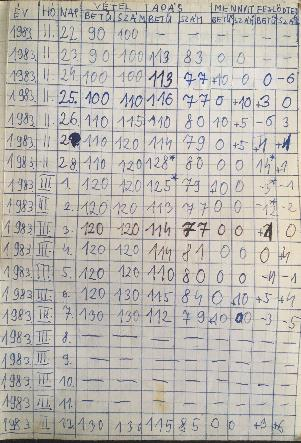 ÉV HÓ NAP VÉTEL ADÁS MENNYIT FEJLŐDTEM
BETŰ SZÁM BETŰ SZÁM BETŰ SZÁM BETŰ SZÁM
1983 II. 22. 90 100 — —
1983 II. 23. 90 100 113 83 0 0 — —
1983 II. 24. 100 100 113 77 +10 0 0 -6
1983. II. 25. 100 110 116 77 0 +10 +3 0
1983 II. 26. 110 115 110 80 10 +5 -6 3
1983 II. 110 120 114 79 0 +5 +4
1983 II. 28. 110 120 128* 80 0 0 14*
1983 III. 1. 120 120 125* 79 10 0 -3* -1
1983 III. 2. 120 120 113 77 0 0 -12 -2
1983 III. 3. 120 120 114 77 0 0 +1 0
1983 III. 4. 120 120 114 81 0 0 0 +4
1983 III. 5. 120 120 110 80 0 0 -4 -1
1983 III. 6. 120 130 115 84 0 10 +5 +4
1983 III. 7. 130 130 112 79 10 0 -3 -5
1983 III. 8. — — — — — — — —
1983 III. 9. — — — — — — — —
1983 III. 10. — — — — — — — —
1983 III. 11. — — — — — — — —
1983 III. 12. 130 130 115 85 0 0 +3 +6